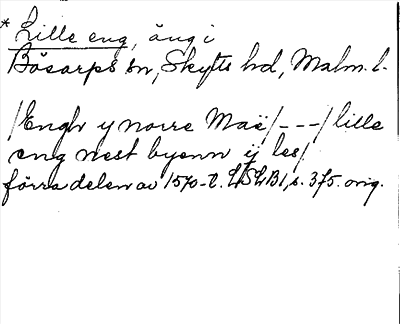 * Lille eng, äng i
Bösarps sn, Skytts hd, Malm. l.
/Engh y norre Maë/---/lille
eng nest byenn ij les/
förra delen av 1570-t. LSLB1, s. 375. orig.